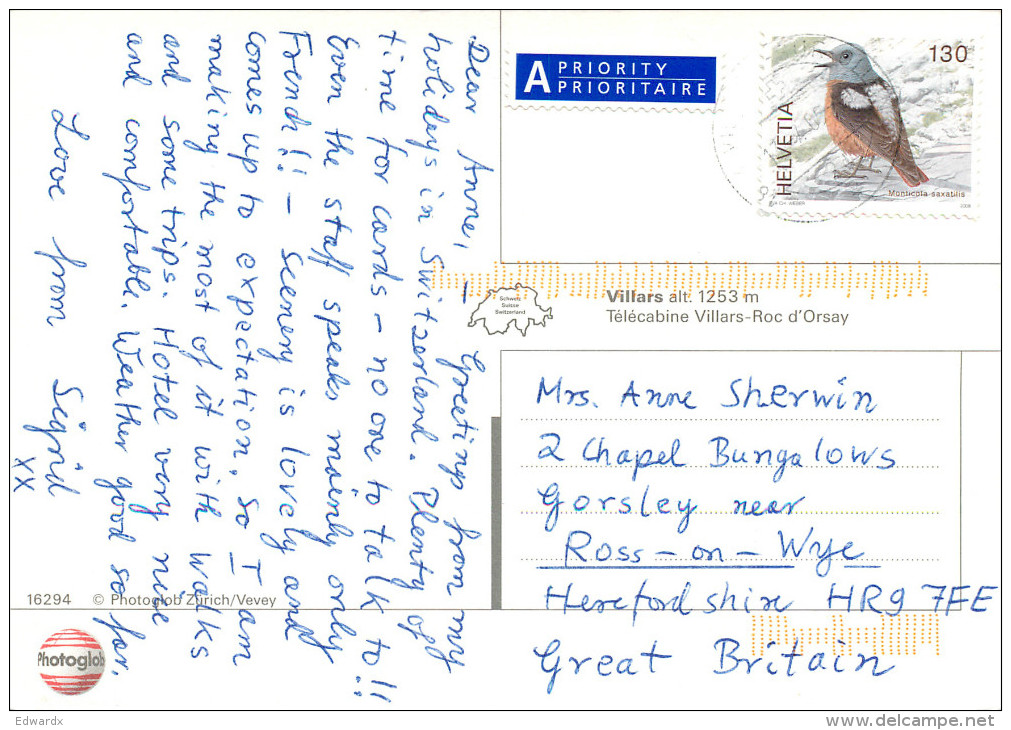 Dear Anne, - Greetings from my
holidays in Switzerland. Plenty of
time for cards - no one to talk to!!
Even the staff speaks mainly only
French!! - Scenery is lovely and
comes up to expectation, so I am
making the most of it with walks
and some trips. Hotel very nice
and comfortable. Weather good so far.
Love from Sigrid
xx
A PRIORITY
PRIORITAIRE
130
HELVETIA
Monticola saxatilis
2009
Schweiz
Suisse
Switzerland
Villars alt. 1253 m
Télécabine Villars-Roc d'Orsay
Mrs. Anne Sherwin
2 Chapel Bungalows
Gorsley near
Ross-on-Wye
Herefordshire HR9 7FE
Great Britain
16294 © Photoglob Zürich/Vevey
Photoglob
Edwardx
delcampe.net